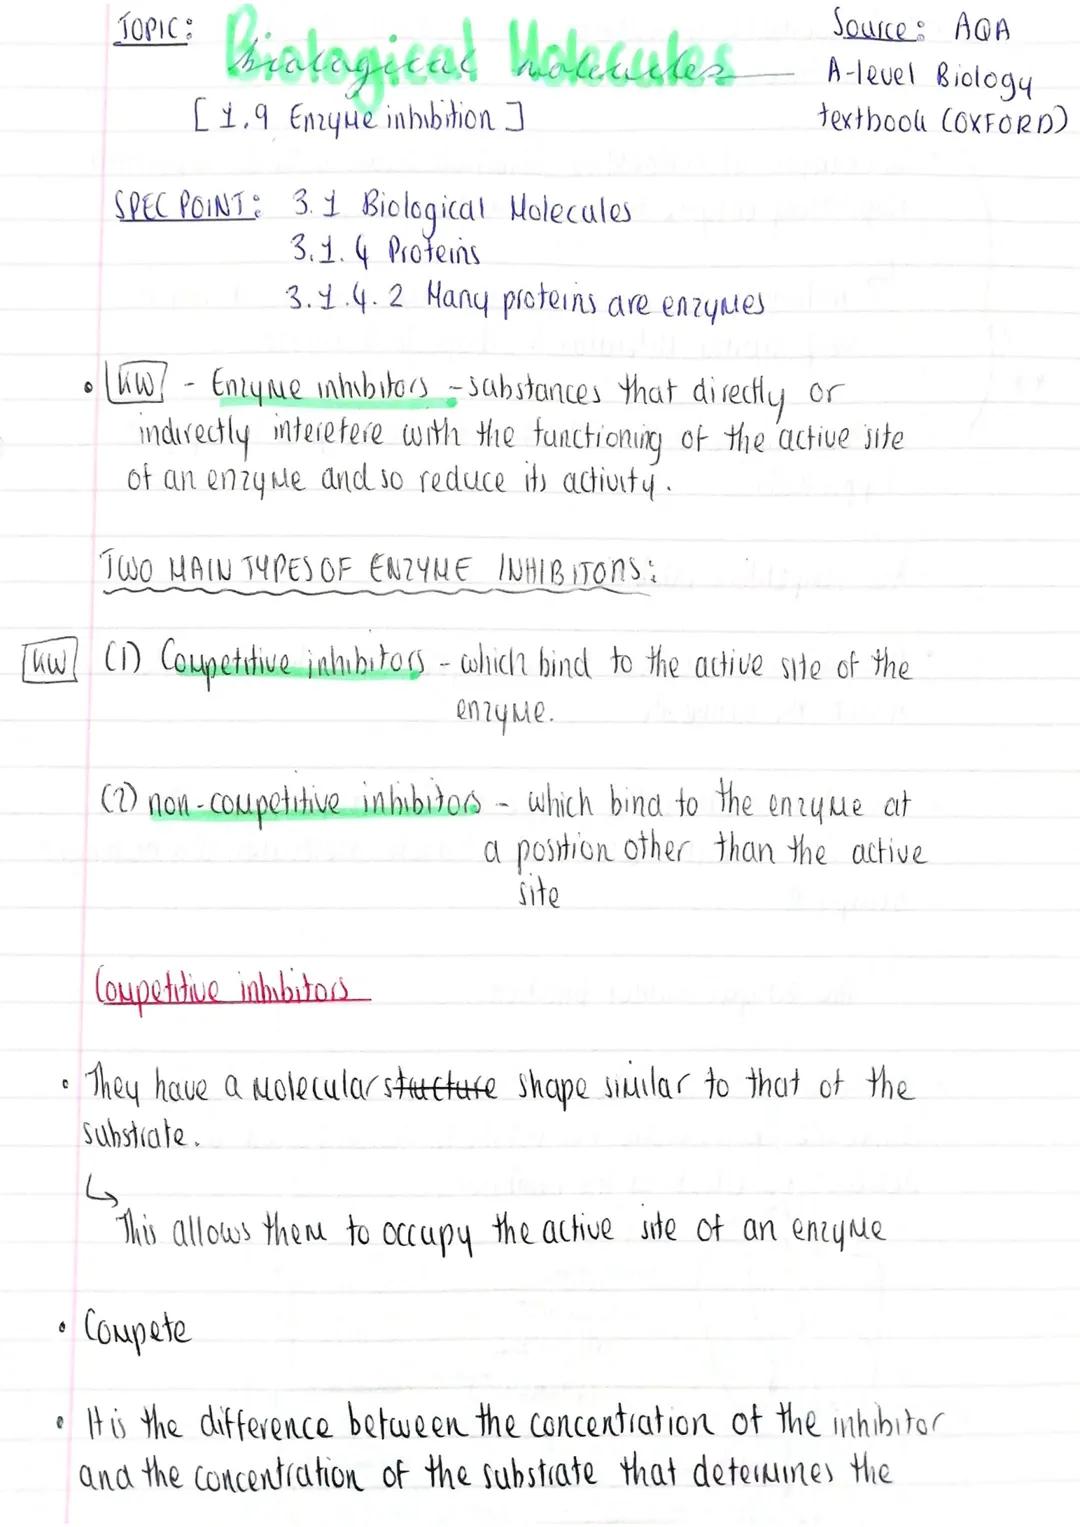 TOPIC: Biological Molecules Source: AQA
A-level Biology
[1.9 Enzyme inhibition] textbook (OXFORD)
SPEC POINT: 3.1 Biological Molecules
3.1.4 Proteins
3.1.4.2 Many proteins are enzymes
• KW - Enzyme inhibitors - substances that directly or
indirectly interefere with the functioning of the active site
of an enzyme and so reduce its activity.
TWO MAIN TYPES OF ENZYME INHIBITORS:
KW (1) Competitive inhibitors - which bind to the active site of the
enzyme.
(2) non-competitive inhibitors - which bind to the enzyme at
a position other than the active
site
Competitive inhibitors
• They have a molecular structure shape similar to that of the
substrate.
↳
This allows them to occupy the active site of an enzyme
• Compete
• It is the difference between the concentration of the inhibitor
and the concentration of the substrate that determines the